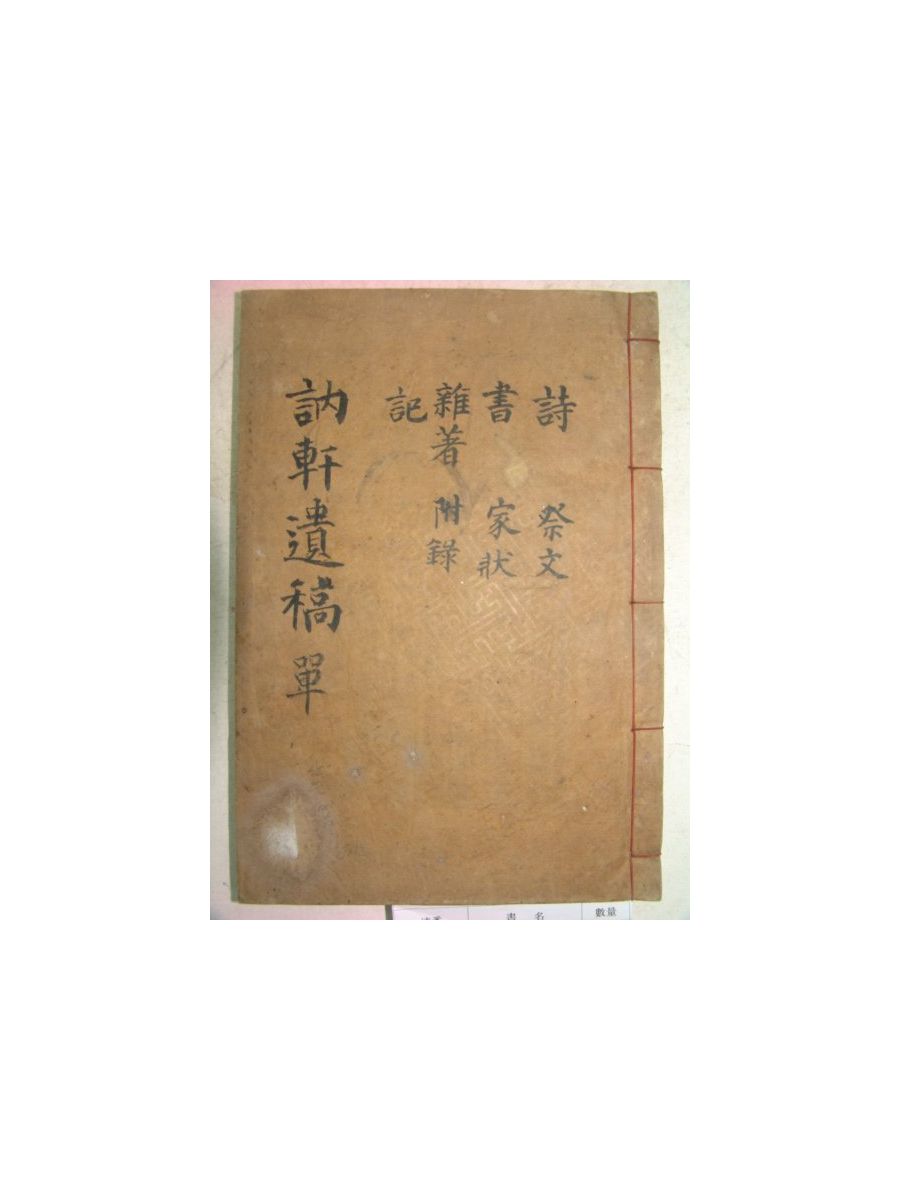 詩 祭文
書 家狀
雜著 附錄
記
訥軒遺稿 單
書 名
數量